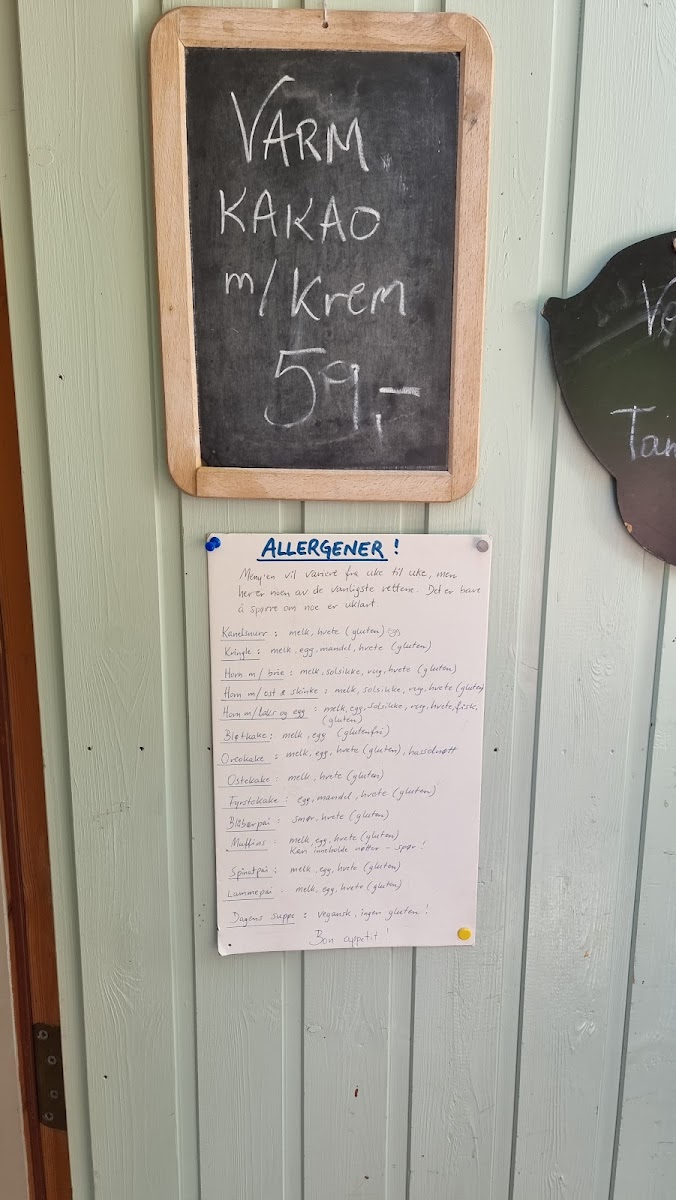 VARM
KAKAO
m/ Krem
59,-
Tan
ALLERGENER !
Menyen vil variere fra uke til uke, men
her er noen av de vanligste rettene. Det er bare
å spørre om noe er uklart.
Kanelsnurr : melk, hvete (gluten) egg
Kringle : melk, egg, mandel, hvete (gluten)
Horn m/ brie : melk, solsikke, rug, hvete (gluten)
Horn m/ ost & skinke : melk, solsikke, rug, hvete (gluten)
Horn m/ laks og egg : melk, egg, solsikke, rug, hvete, fisk,
(gluten)
Bløtkake : melk, egg (glutenfri)
Oreokake : melk, egg, hvete (gluten), hasselnøtt
Ostekake : melk, hvete (gluten)
Fyrstekake : egg, mandel, hvete (gluten)
Blåbærpai : smør, hvete (gluten)
Muffins : melk, egg, hvete (gluten)
Kan inneholde nøtter - spør !
Spinatpai : melk, egg, hvete (gluten)
Lammepai : melk, egg, hvete (gluten)
Dagens suppe : vegansk, ingen gluten !
Bon appetit !